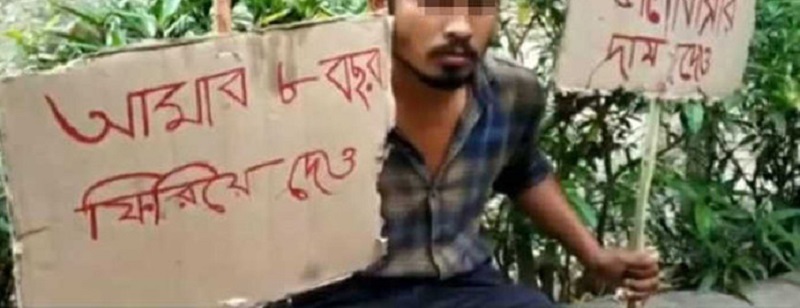 আমার ৮ বছর
ফিরিয়ে দেও
দাম দেও